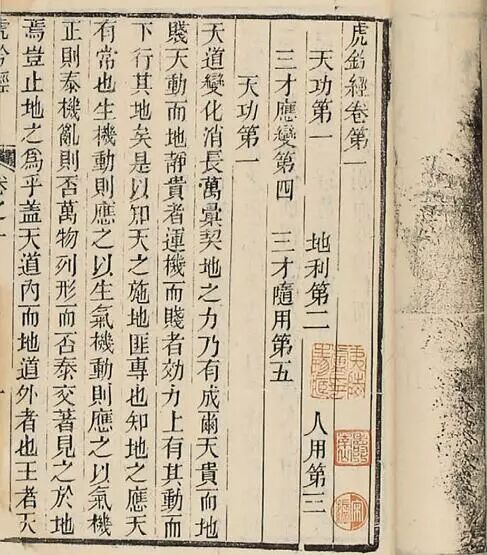 虎鈐經卷第一
天功第一 地利第二 人用第三
三才應變第四 三才隨用第五
天功第一
天道變化消長萬彙契地之力乃有成爾天貴而地
賤天動而地靜貴者運機而賤者効力上有其動而
下行其地矣是以知天之施地匪專也知地之應天
有常也生機動則應之以生氣機動則應之以氣機
正則泰機亂則否萬物列形而否泰交著見之於地
焉豈止地之爲乎蓋天道内而地道外者也王者天
虎鈐經 卷之一